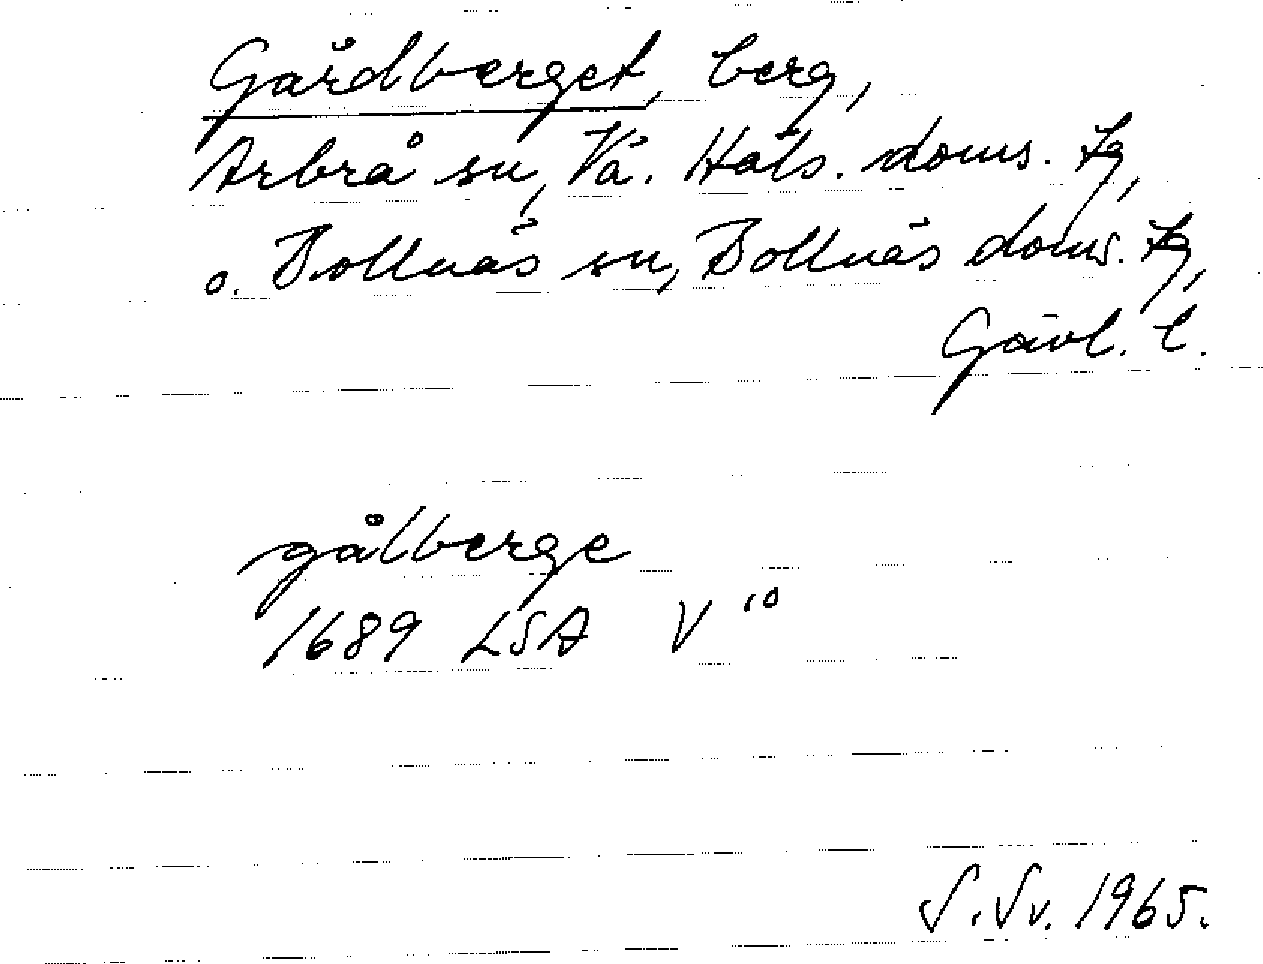 Gårdberget, berg,
Arbrå sn, Vä. Häls. doms. tg,
o. Bollnäs sn, Bollnäs doms. tg,
Gävl. l.
gålberge
1689 LSA V 10
S. Sv. 1965.